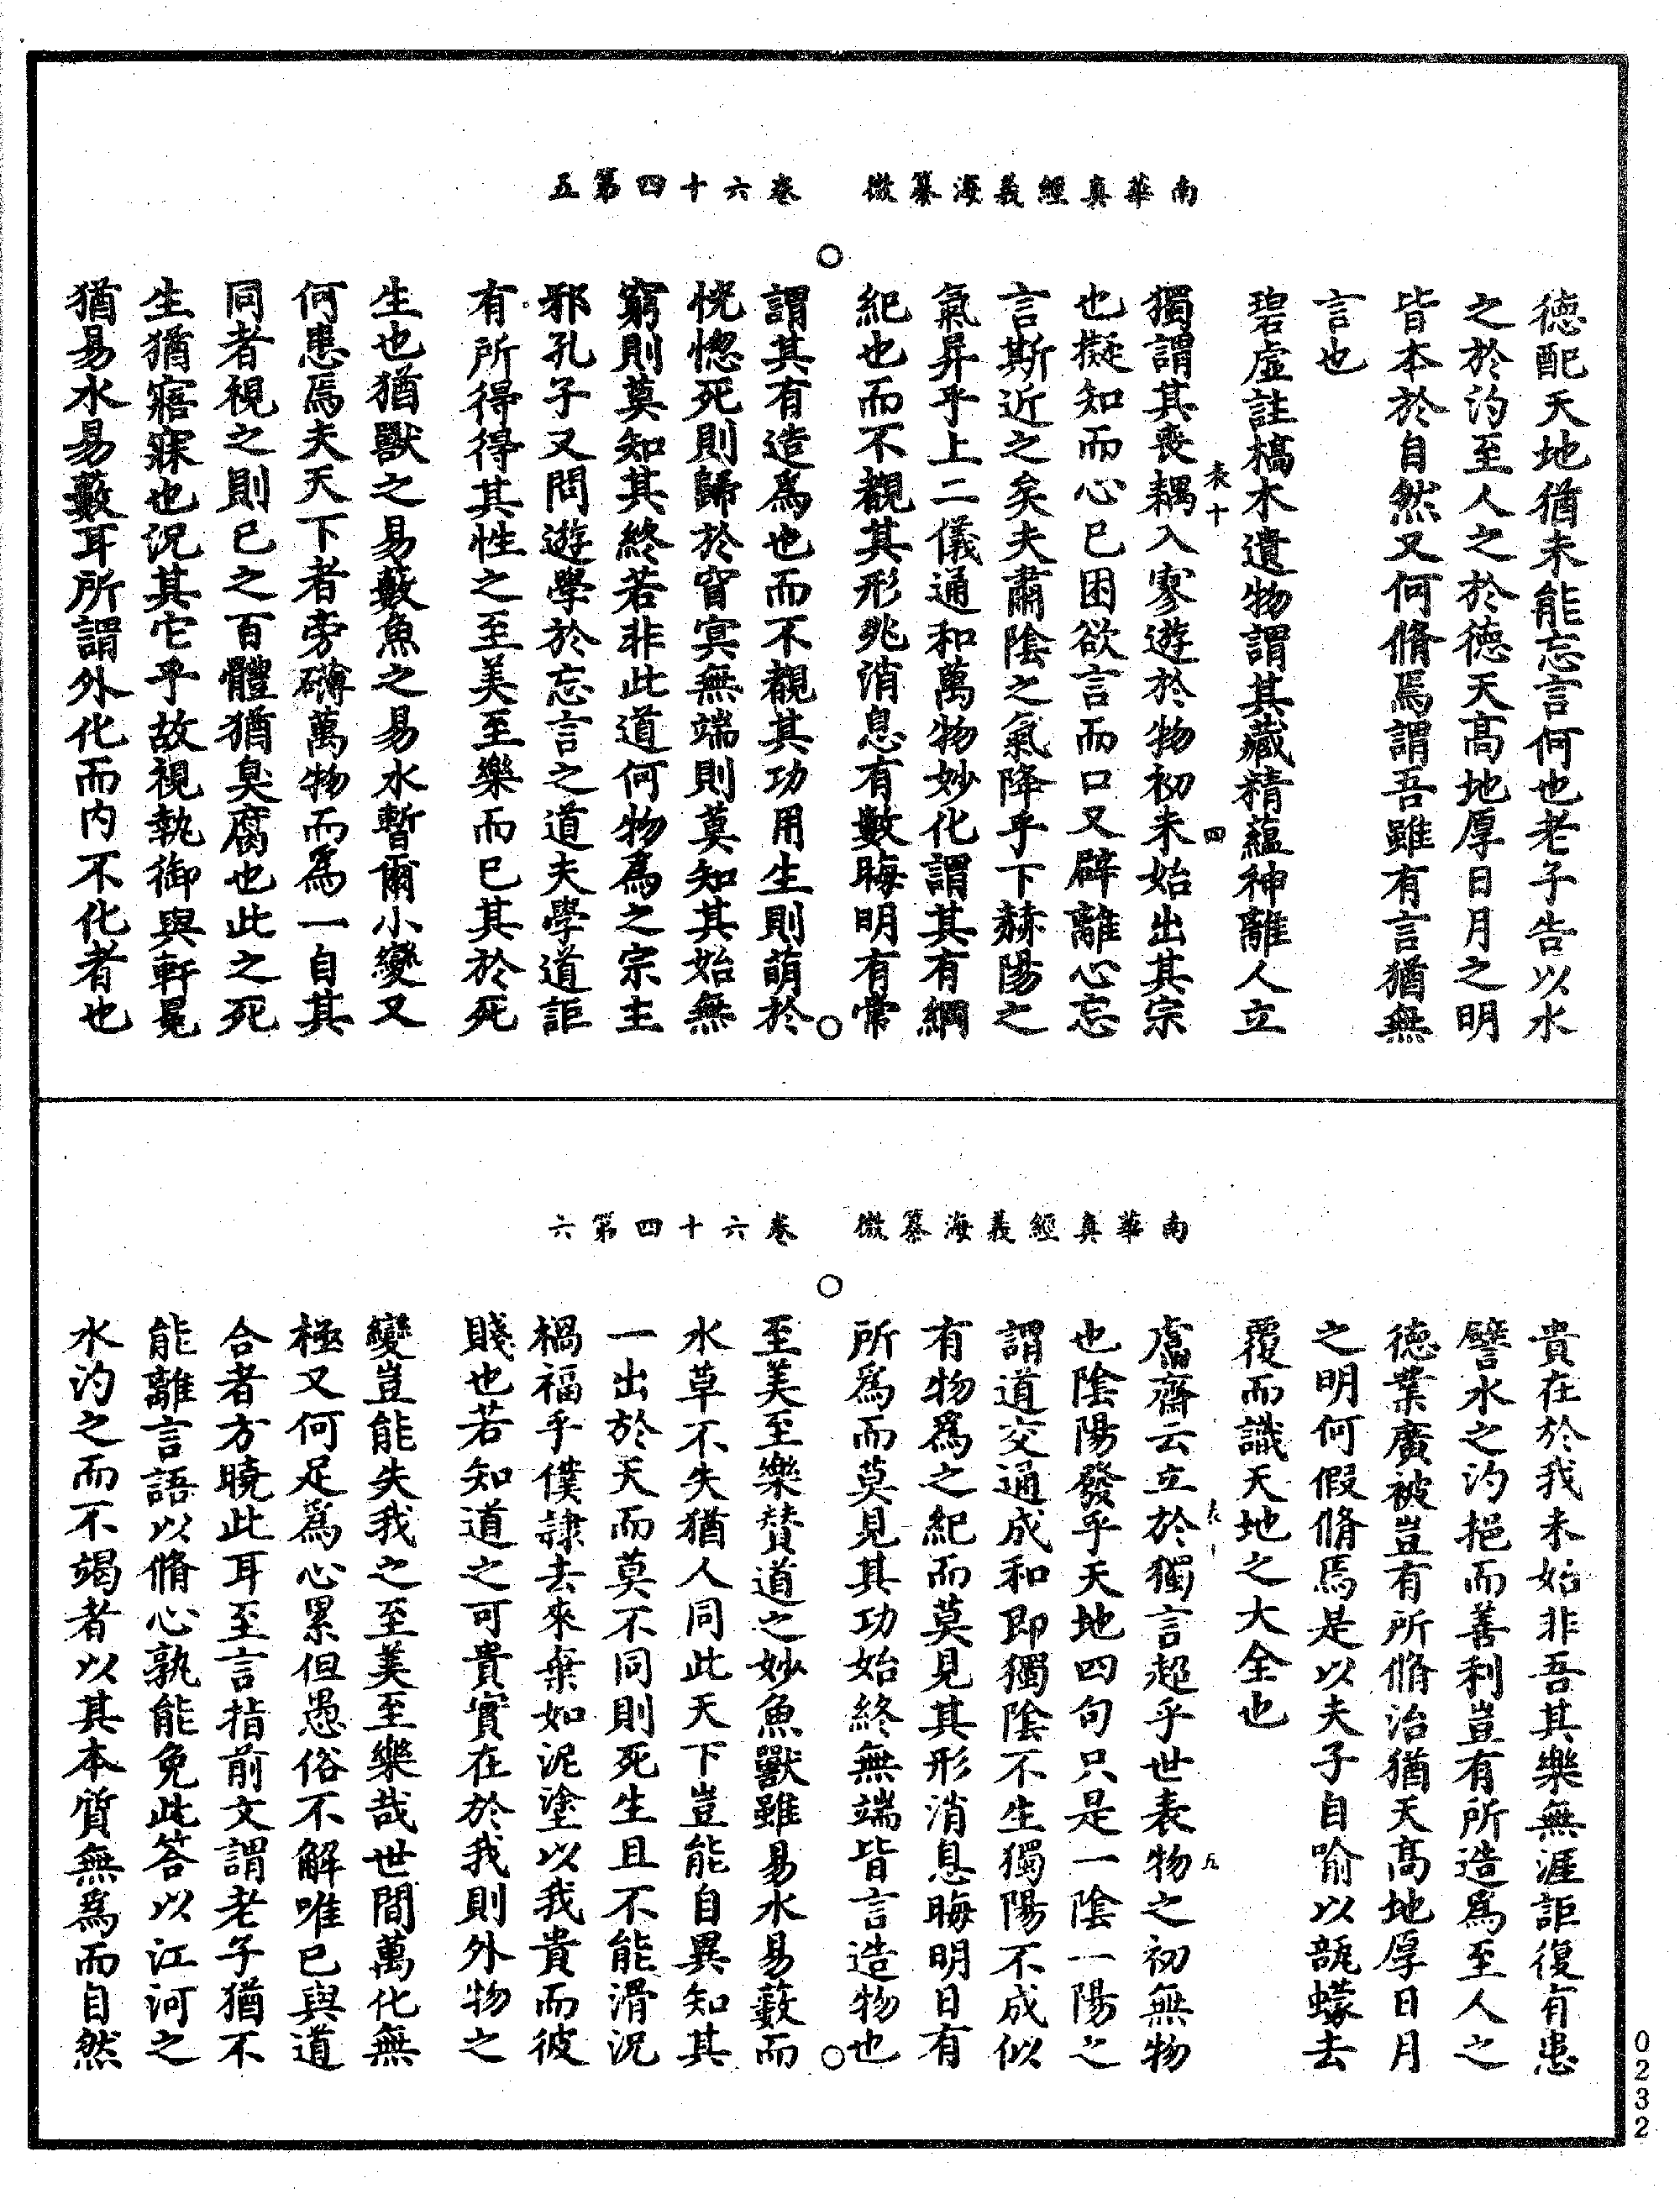 南華真經義海纂微　卷六十四第五
德配天地猶未能忘言何也老子告以水
之於汋至人之於德天高地厚日月之明
皆本於自然又何脩焉謂吾雖有言猶無
言也
碧虛註槁木遺物謂其藏精蘊神離人立
獨謂其喪耦入寥遊於物初未始出其宗
也擬知而心已困欲言而口又辟離心忘
言斯近之矣夫肅陰之氣降乎下赫陽之
氣昇乎上二儀通和萬物妙化謂其有綱
紀也而不覩其形兆消息有數晦明有常
謂其有造為也而不覩其功用生則萌於
恍惚死則歸於窅冥無端則莫知其始無
窮則莫知其終若非此道何物為之宗主
邪孔子又問遊學於忘言之道夫學道詎
有所得得其性之至美至樂而已其於死
生也猶獸之易藪魚之易水暫爾小變又
何患焉夫天下者旁礴萬物而為一自其
同者視之則已之百體猶臭腐也此之死
生猶寤寐也況其它乎故視執御與軒冕
猶易水易藪耳所謂外化而內不化者也
表十
四
南華真經義海纂微　卷六十四第六
貴在於我未始非吾其樂無涯詎復有患
譬水之汋挹而善利豈有所造為至人之
德業廣被豈有所脩治猶天高地厚日月
之明何假脩焉是以夫子自喻以甕蠓去
覆而識天地之大全也
鬳齋云立於獨言超乎世表物之初無物
也陰陽發乎天地四句只是一陰一陽之
謂道交通成和即獨陰不生獨陽不成似
有物為之紀而莫見其形消息晦明日有
所為而莫見其功始終無端皆言造物也
至美至樂贊道之妙魚獸雖易水易藪而
水草不失猶人同此天下豈能自異知其
一出於天而莫不同則死生且不能滑況
禍福乎僕隷去來棄如泥塗以我貴而彼
賤也若知道之可貴實在於我則外物之
變豈能失我之至美至樂哉世間萬化無
極又何足為心累但愚俗不解唯已與道
合者方曉此耳至言指前文謂老子猶不
能離言語以脩心孰能免此答以江河之
水汋之而不竭者以其本質無為而自然
九
0232